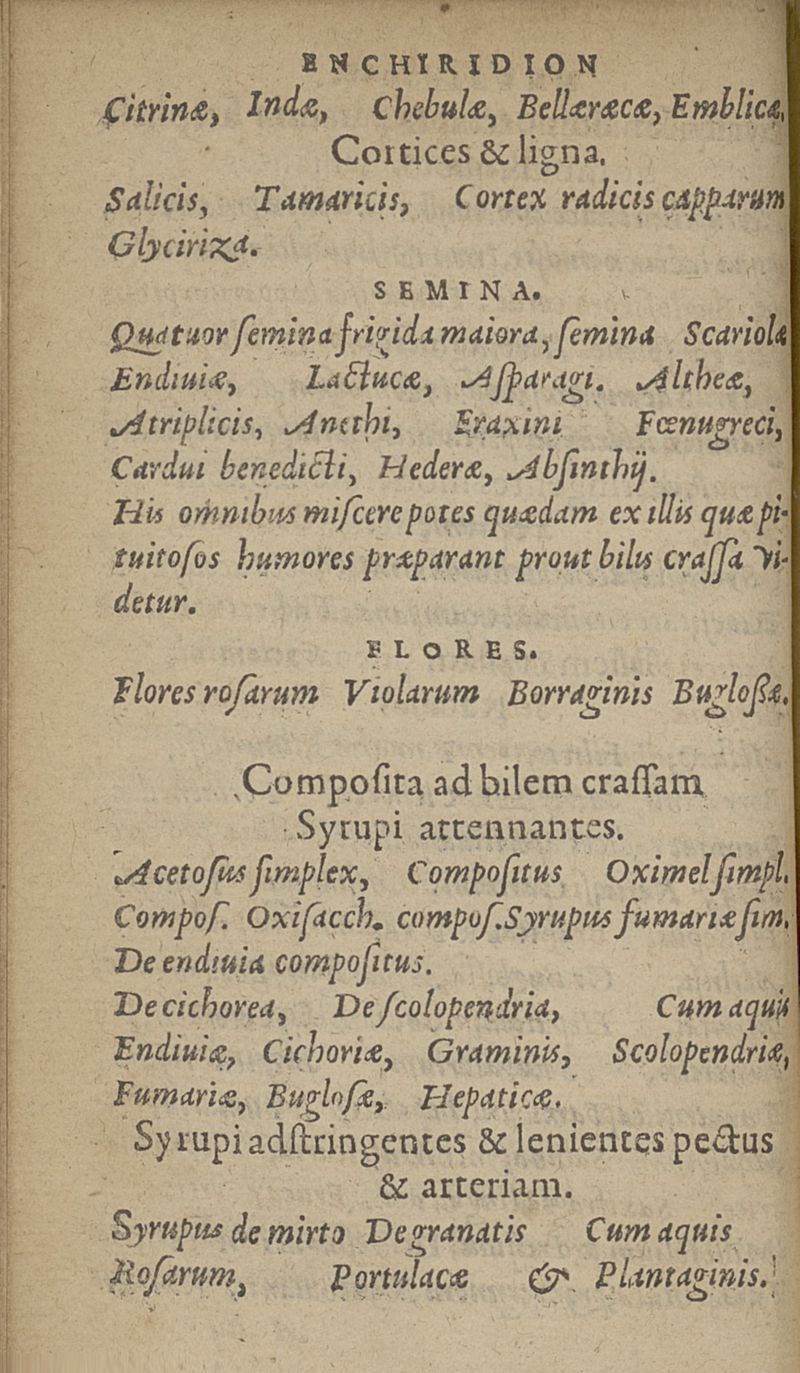 ENCHIRIDION
Citrinæ, Indæ, Chebulæ, Bellæræcæ, Emblicæ,
Cortices & ligna.
Salicis, Tamaricis, Cortex radicis capparum
Glycirizza.
SEMINA.
Quatuor ſemina frigida maiora, ſemina Scariolæ
Endiuiæ, Lactucæ, Aſparagi. Altheæ,
Atriplicis, Anethi, Eraxini Fœnugreci,
Cardui benedicti, Hederæ, Abſinthij.
His omnibus miſcere potes quædam ex illis quæ pi-
tuitoſos humores præparant prout bilis craſſa vi-
detur.
FLORES.
Flores roſarum Violarum Borraginis Bugloßæ.
Compoſita ad bilem craſſam
Syrupi attennantes.
Acetoſus ſimplex, Compoſitus Oximel ſimpl.
Compoſ. Oxiſacch. compoſ. Syrupus fumariæ ſim.
De endiuia compoſitus.
De cichorea, De ſcolopendria, Cum aquis
Endiuiæ, Cichoriæ, Graminis, Scolopendriæ,
Fumariæ, Bugloſæ, Hepaticæ.
Syrupi adſtringentes & lenientes pectus
& arteriam.
Syrupus de mirto De granatis Cum aquis
Roſarum, Portulacæ & Plantaginis.